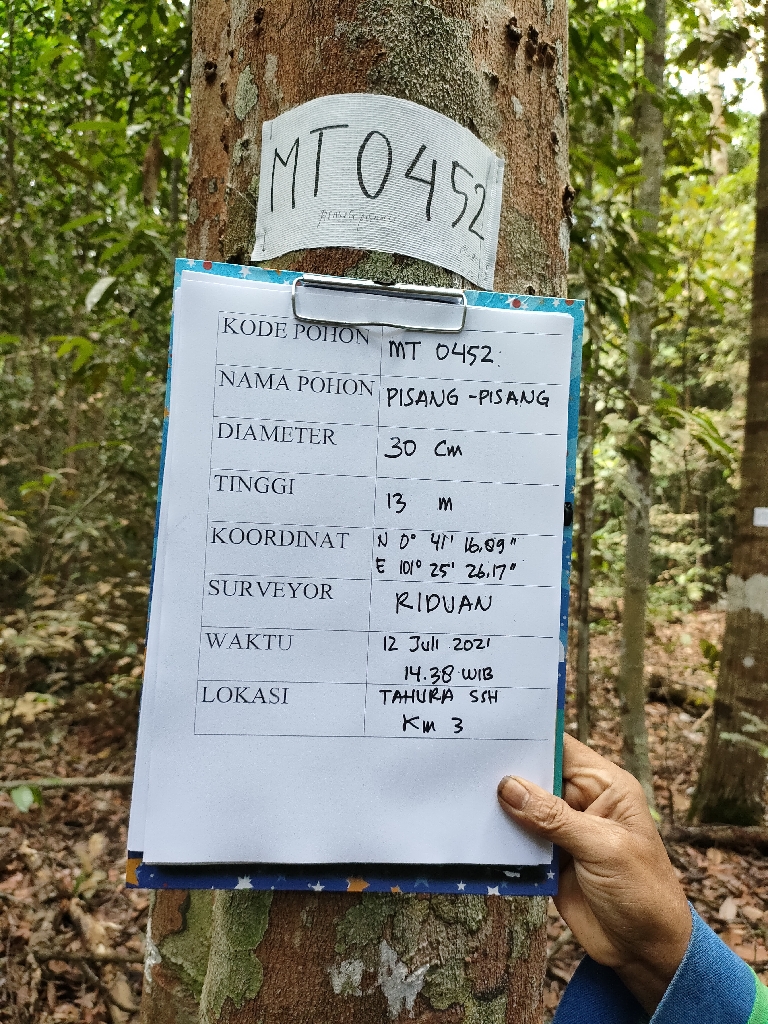 MT 0452
KODE POHON MT 0452
NAMA POHON PISANG-PISANG
DIAMETER 30 cm
TINGGI 13 m
KOORDINAT N 0° 41' 16,09"
E 101° 25' 26,17"
SURVEYOR RIDUAN
WAKTU 12 Juli 2021
14.38 WIB
LOKASI TAHURA SSH
Km 3